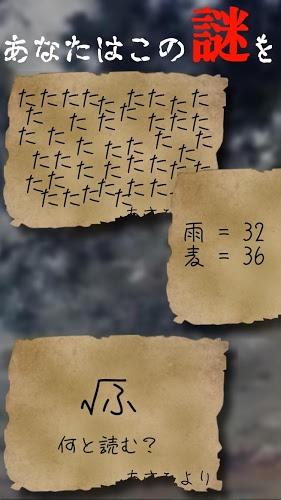 あなたはこの謎を
たたたたたたたたた
たたたたたた
たたたたたた
たたたたたた
たたたたたたた
たたたたたたた
たたたたたたたた
雨 = 32
麦 = 36
√ふ
何と読む？
より